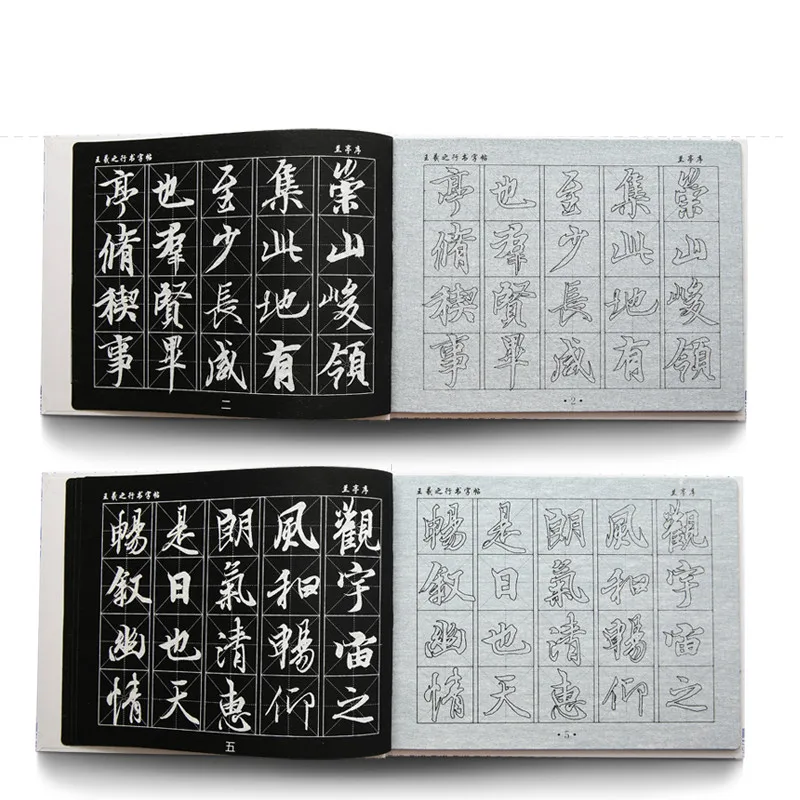 王羲之行书字帖
兰亭序
亭脩稧事
也羣賢畢
至少長咸
集此地有
崇山峻領
二
王羲之行书字帖
兰亭序
亭脩稧事
也羣賢畢
至少長咸
集此地有
崇山峻領
·2·
王羲之行书字帖
兰亭序
暢叙幽情
是日也天
朗氣清惠
風和暢仰
觀宇宙之
五
王羲之行书字帖
兰亭序
暢叙幽情
是日也天
朗氣清惠
風和暢仰
觀宇宙之
·5·